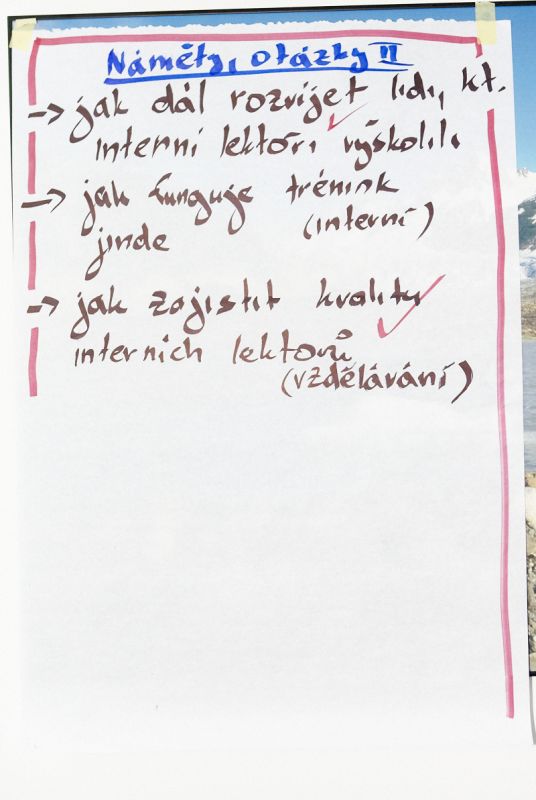 Náměty, otázky II
→ jak dál rozvíjet lidi, kt.
interní lektoři vyškolili
→ jak funguje trénink
jinde (interní)
→ jak zajistit kvalitu
interních lektorů
(vzdělávání)